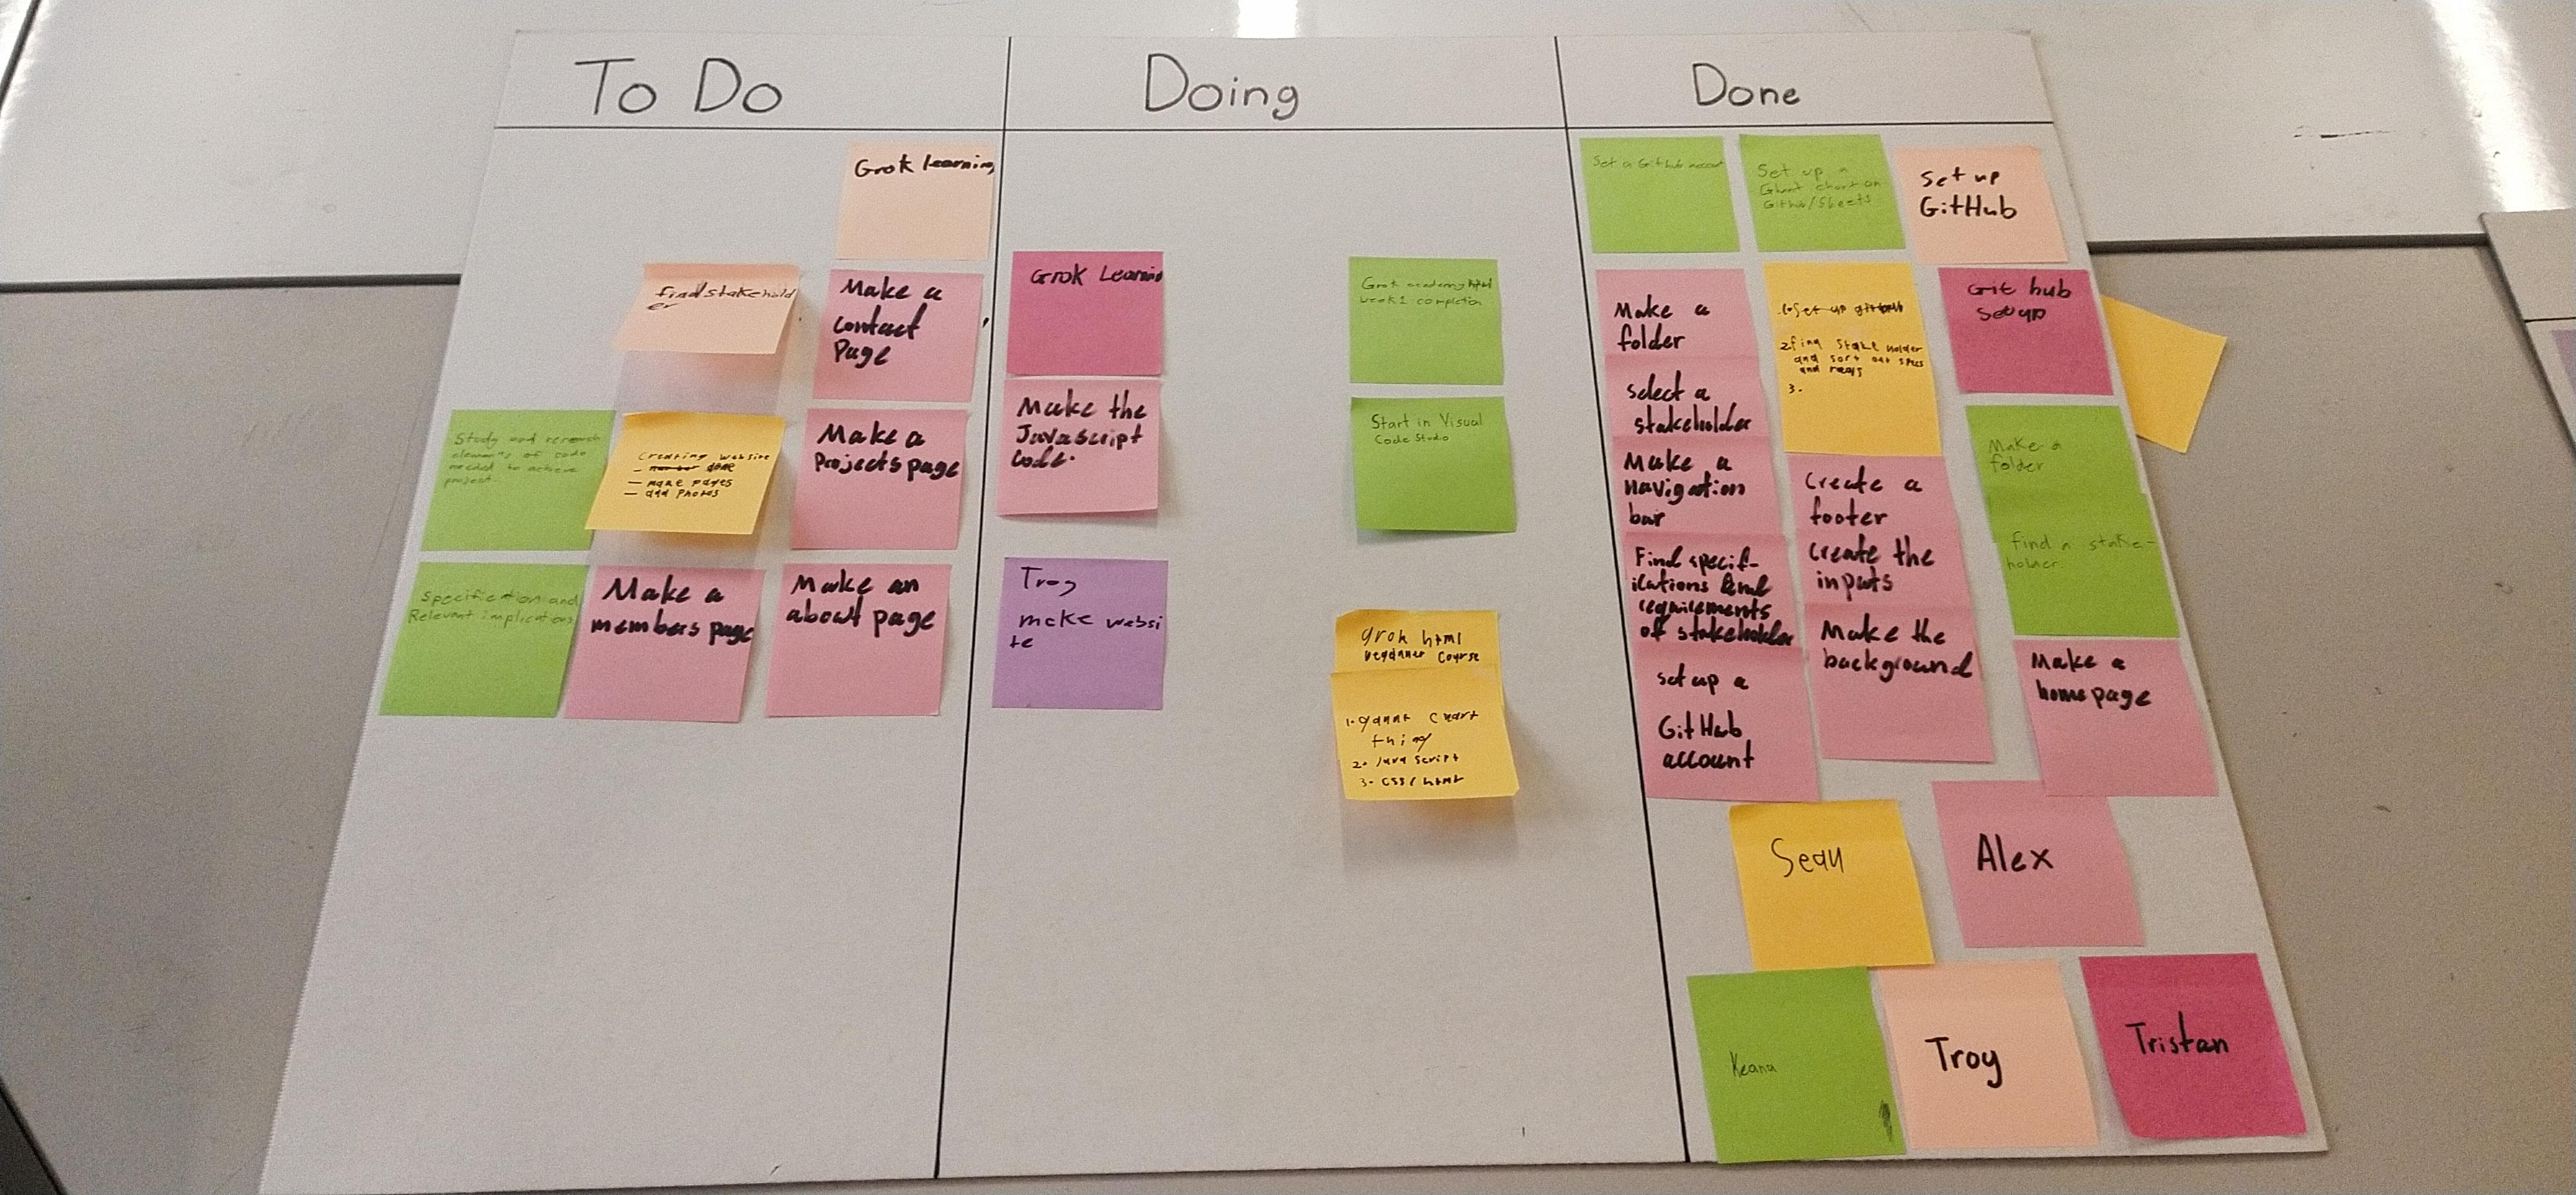 To Do
Doing
Done
Grok learning
find stakehold
er
Make a
contact
Page
Study and research
elements of code
needed to achieve
project.
Creating website
done
— make pages
— add Photos
Make a
Projects page
Specification and
Relevant implications
Make a
members page
Make an
about page
Grok Learnin
Make the
Javascript
code.
Troy
make websi
te
Grok academy html
week 1 completion
Start in Visual
Code Studio
grok html
beginner course
1. gannt chart
thing
2. Java script
3. CSS/html
Set a Github account
Set up a
Ghant chart on
Github/Sheets
Set up
GitHub
Make a
folder
select a
stakeholder
Make a
navigation
bar
Find specif-
ications and
requirements
of stakeholder
set up a
GitHub
account
1. Set up github
2. find stake holder
and sort out specs
and
3.
Create a
footer
Create the
inputs
Make the
background
Git hub
set up
Make a
folder
find a stake-
holder
Make a
homepage
Sean
Alex
Keanu
Troy
Tristan